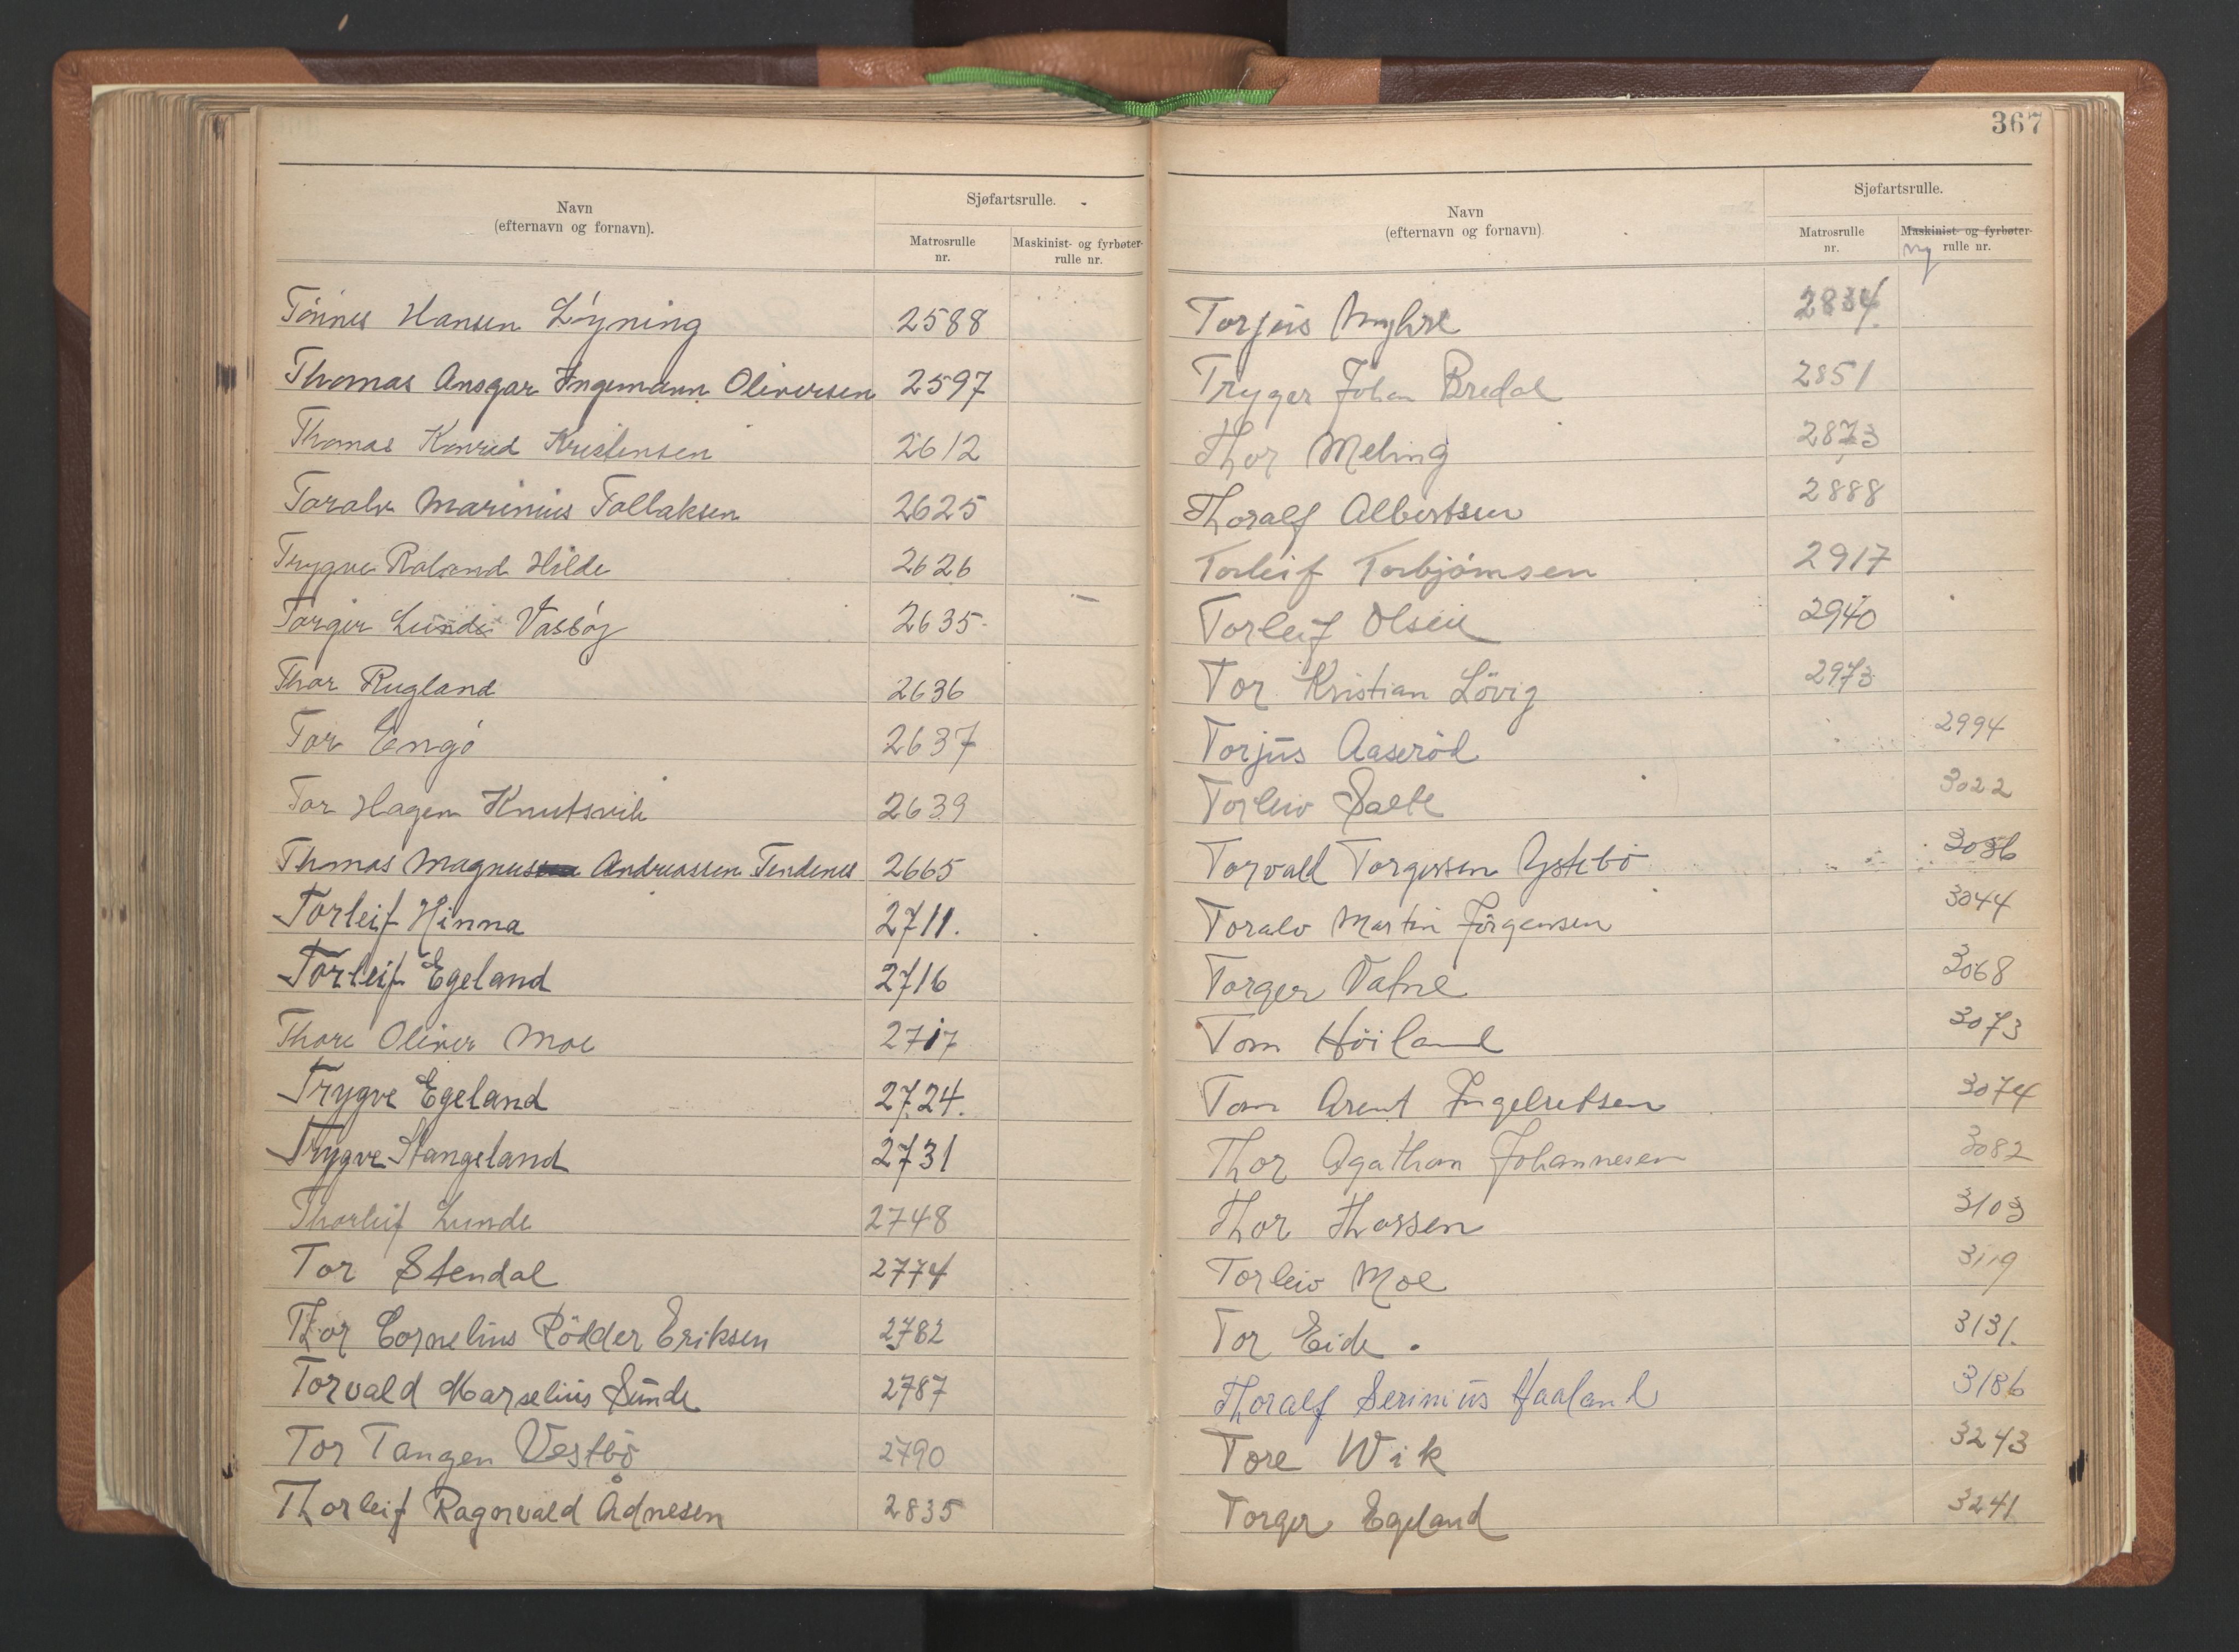 Navn
(efternavn og fornavn).
Sjøfartsrulle.
Matrosrulle
nr.
Maskinist- og fyrbøter-
rulle nr.
Tönnes Hansen Löyning 2588
Thomas Ansgar Ingemann Oliversen 2597
Thomas Konrad Kristensen 2612
Toralv Marinius Tollaksen 2625
Trygve Roland Hilde 2626
Torger Lunde Vasböy 2635
Thor Rugland 2636
Tor Engö 2637
Tor Hagen Knutsvik 2639
Thomas Magnus Andreassen Tendenes 2665
Torleif Hinna 2711.
Torleif Egeland 2716
Thore Oliver Moe 2717
Trygve Egeland 2724.
Trygve Stangeland 2731
Thorleif Lunde 2748
Tor Stendal 2774
Thor Cornelius Rödder Eriksen 2782
Torvald Marselius Sunde 2787
Tor Tangen Vestbö 2790
Thorleif Ragnvald Ådnesen 2835
367
Navn
(efternavn og fornavn)
Sjøfartsrulle.
Matrosrulle
nr.
Maskinist- og fyrbøter-
ny rulle nr.
Torjus Myhre 2834.
Trygve Johan Bredal 2851
Thor Meling 2873
Thoralf Albertsen 2888
Torleif Torbjörnsen 2917
Torleif Olsen 2940
Tor Kristian Lövig 2973
Torjus Aaseröd 2994
Torleiv Salte 3022
Torvald Torgersen Ystebö 3036
Toralv Martin Jörgensen 3044
Torger Vatne 3068
Tom Höiland 3073
Tom Arent Ingelretsen 3074
Thor Agathon Johannesen 3082
Thor Thorsen 3103
Torleiv Moe 3119
Tor Eide. 3131.
Thoralf Serinius Haaland 3186
Tore Wik 3243
Torger Egeland 3241